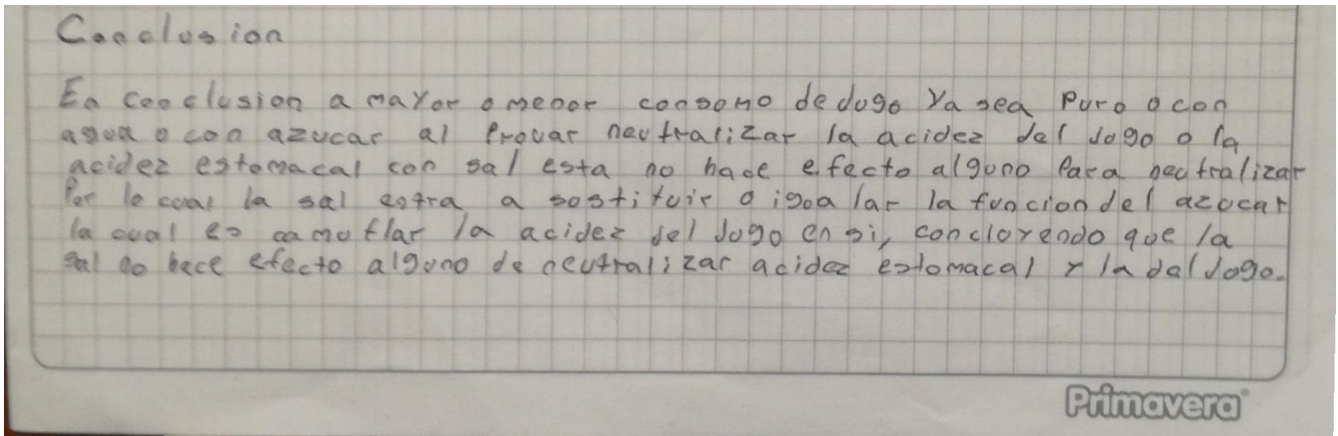 Conclusion
En conclusion a mayor o menor consomo de Jugo Ya sea Puro o con
agua o con azucar al Provar neutralizar la acidez del Jugo o la
acidez estomacal con sal esta no hace efecto alguno Para neutralizar
Por lo cual la sal entra a sostituir o igualar la funcion del azucar
la cual es camuflar la acidez del Jugo en si, concluyendo que la
sal no hece efecto alguno de neutralizar acidez estomacal y la dal Jogo.
Primavera